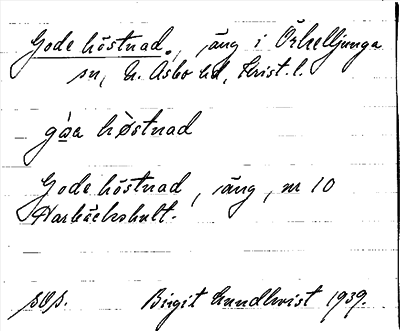 Gode höstnad., äng i Örkelljunga
sn, N. Asbo hd, Krist. l.
gàa hòstnad
Gode höstnad, äng, nr 10
Harbäckshult.
sos. Birgit Lundkvist 1939.